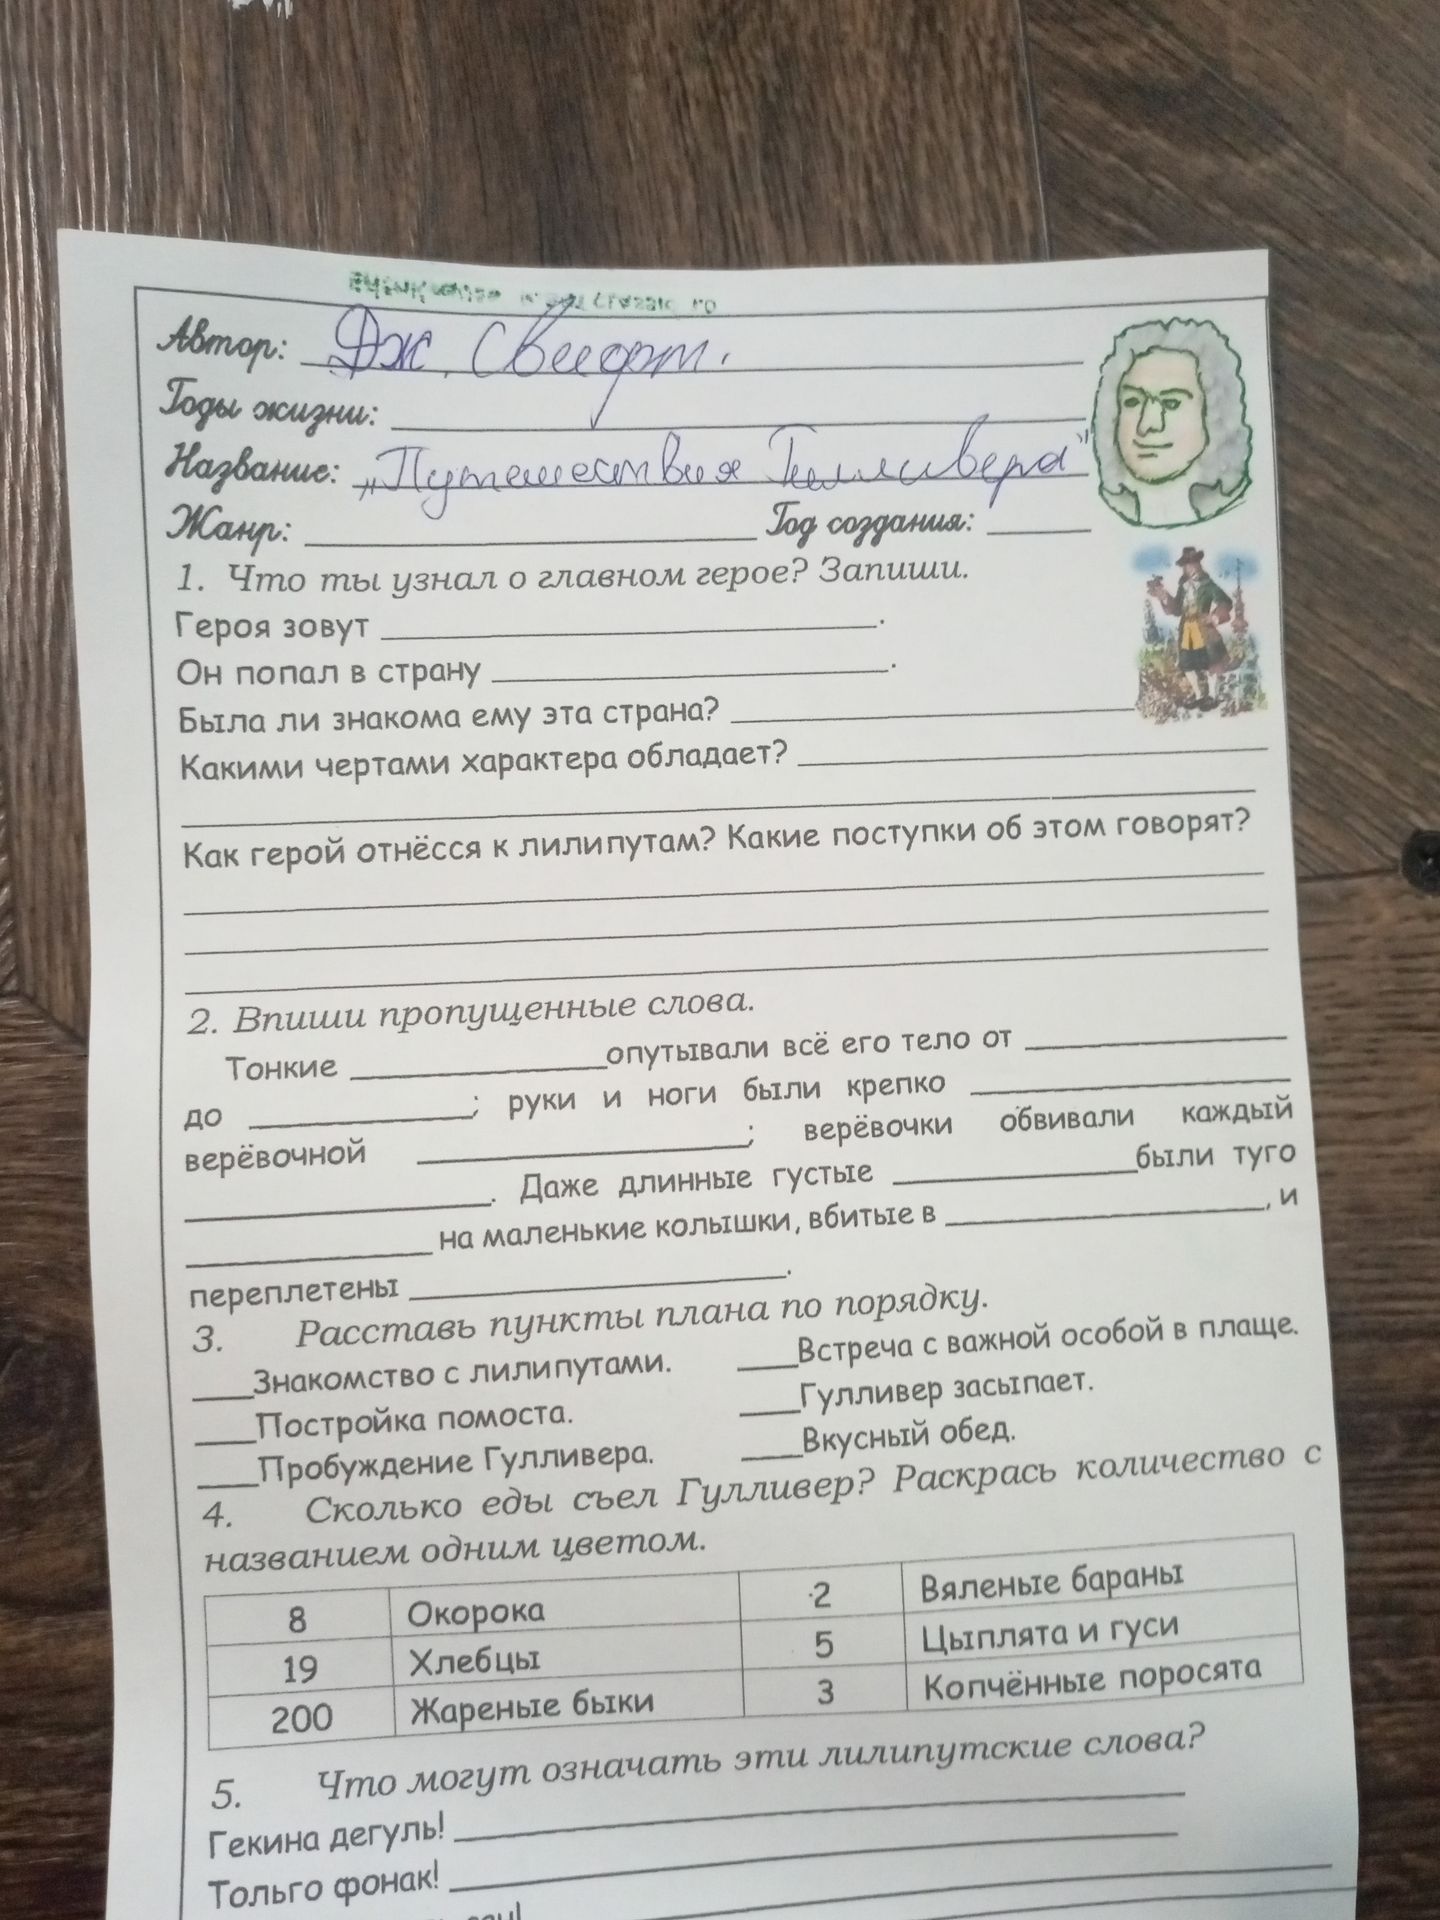 Автор: Дж. Свифт.
Годы жизни:
Название: „Путешествия Гулливера"
Жанр: Год создания:
1. Что ты узнал о главном герое? Запиши.
Героя зовут .
Он попал в страну .
Была ли знакома ему эта страна?
Какими чертами характера обладает?
Как герой отнёсся к лилипутам? Какие поступки об этом говорят?
2. Впиши пропущенные слова.
Тонкие опутывали всё его тело от
до ; руки и ноги были крепко
верёвочной ; верёвочки обвивали каждый
. Даже длинные густые были туго
на маленькие колышки, вбитые в , и
переплетены .
3. Расставь пункты плана по порядку.
Знакомство с лилипутами. Встреча с важной особой в плаще.
Постройка помоста. Гулливер засыпает.
Пробуждение Гулливера. Вкусный обед.
4. Сколько еды съел Гулливер? Раскрась количество с
названием одним цветом.
8 Окорока 2 Вяленые бараны
19 Хлебцы 5 Цыплята и гуси
200 Жареные быки 3 Копчённые поросята
5. Что могут означать эти лилипутские слова?
Гекина дегуль!
Тольго фонак!